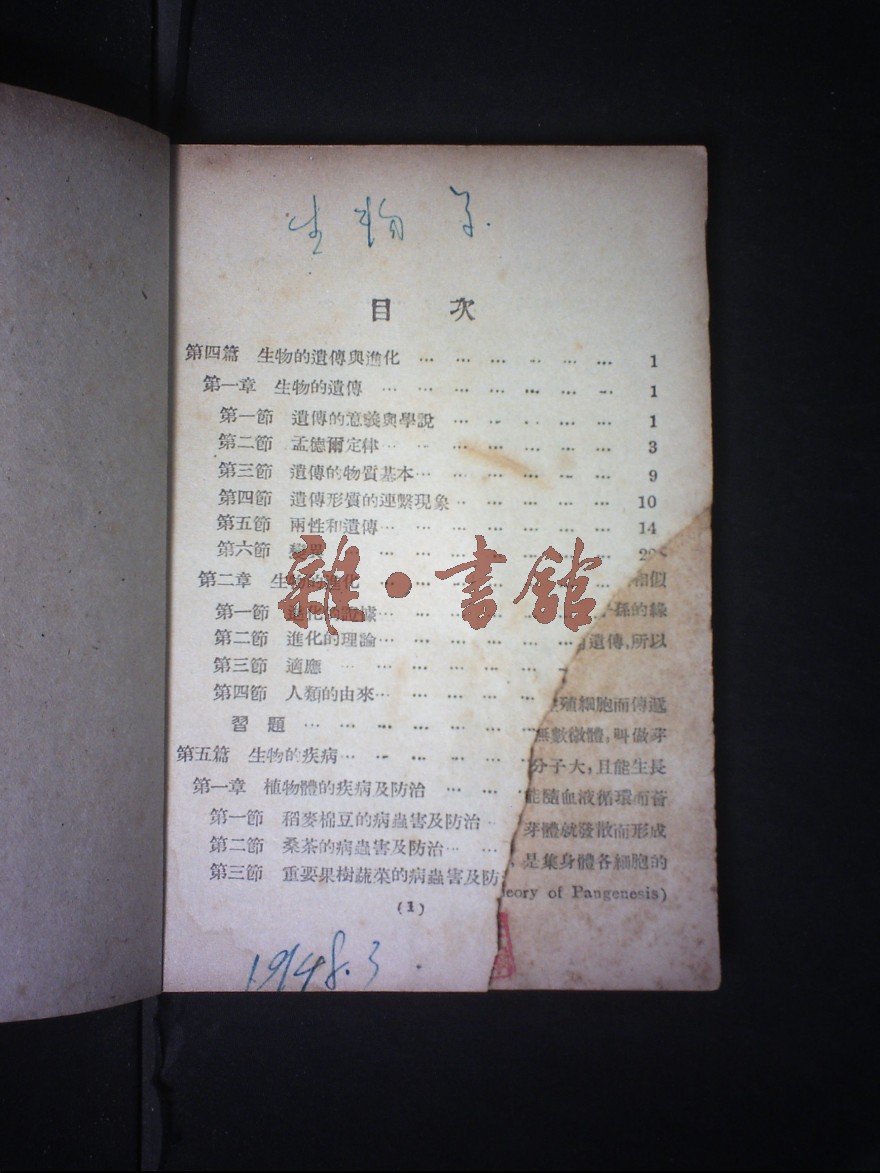 生物学.
目 次
第四篇 生物的遺傳與進化 … … … … … … 1
第一章 生物的遺傳 … … … … … … … 1
第一節 遺傳的意義與學說 … … … … … … 1
第二節 孟德爾定律 … … … … … … … 3
第三節 遺傳的物質基本 … … … … … … 9
第四節 遺傳形質的連繫現象 … … … … … … 10
第五節 兩性和遺傳 … … … … … … … 14
第六節 變異 … … … … … … …
第二章 生物的進化 … … … … … … … 相似
第一節 進化的證據 … … … … … … 孫的緣
第二節 進化的理論 … … … … … … 遺傳,所以
第三節 適應 … … … … … … …
第四節 人類的由來 … … … … … 殖細胞而傳遞
習 題 … … … … … … … 無數微體,叫做芽
第五篇 生物的疾病 … … … … … 分子大,且能生長
第一章 植物體的疾病及防治 … … … 能隨血液循環而蓄
第一節 稻麥棉豆的病蟲害及防治 … 芽體就發散而形成
第二節 桑茶的病蟲害及防治 … … 是集身體各細胞的
第三節 重要果樹蔬菜的病蟲害及防 eory of Pangenesis)
(1)
1948.3
雜·書館